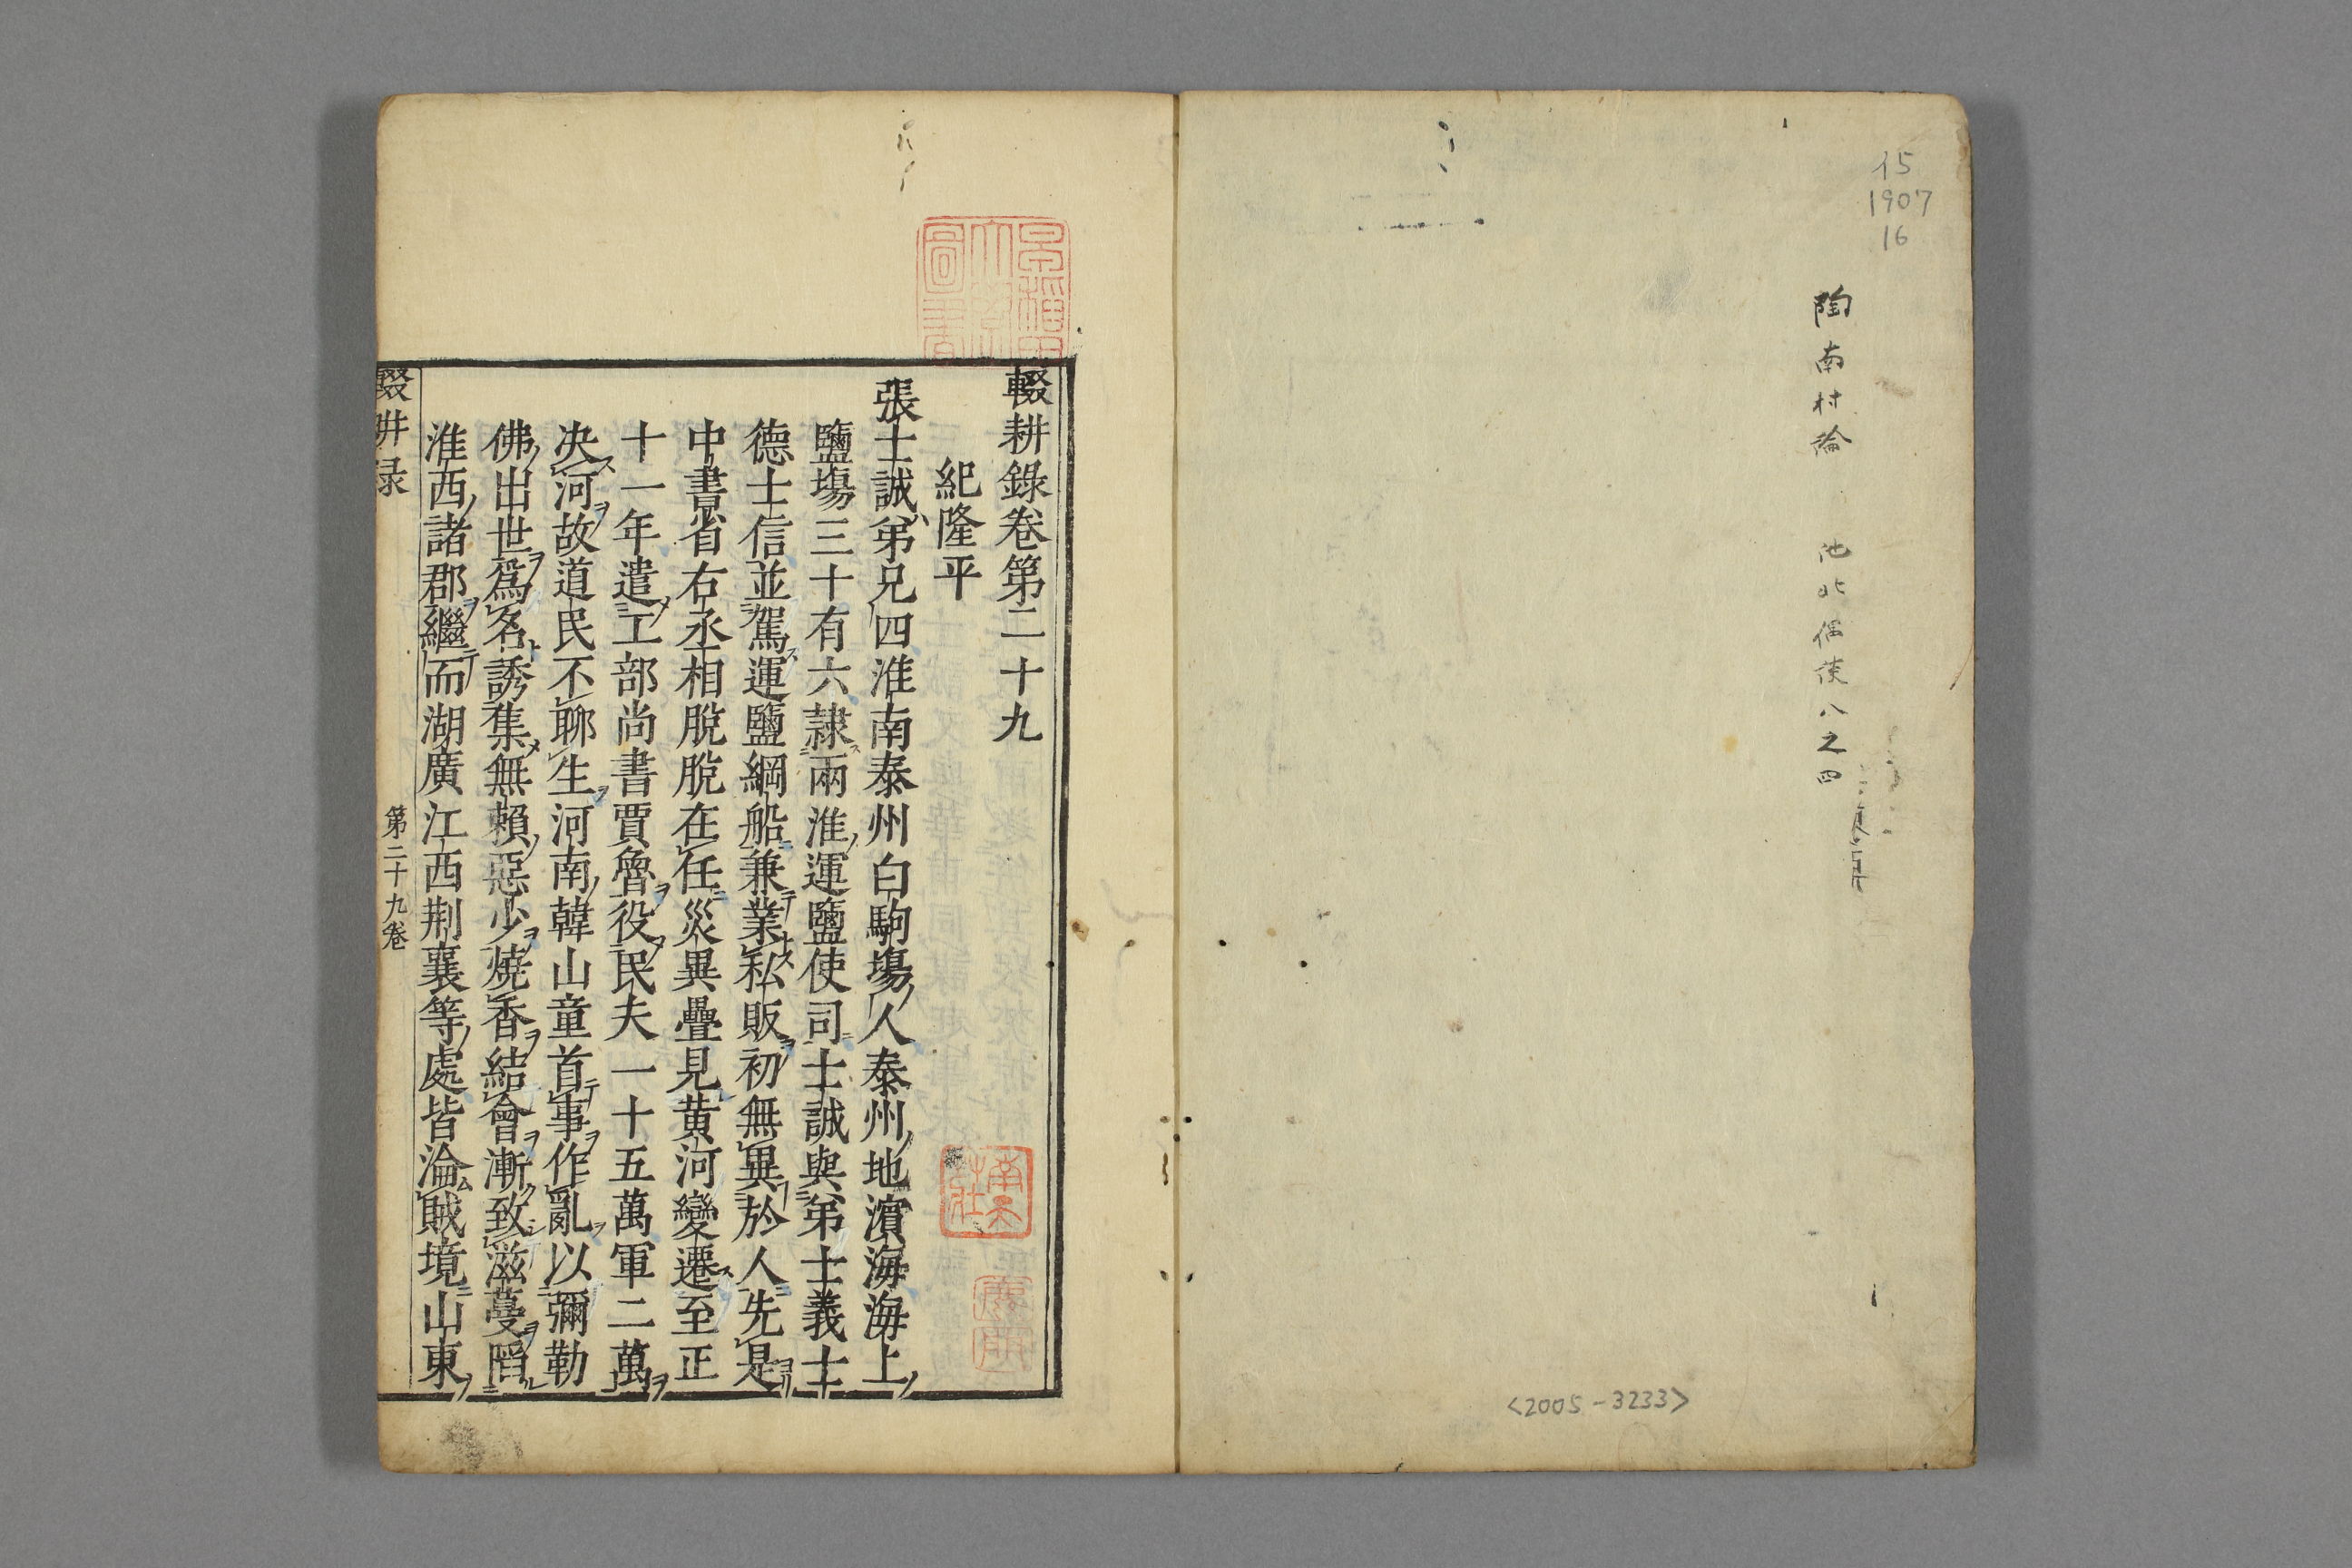 15
1907
16
陶南村論 池北偶
八之四
<2005-3233>
輟耕錄卷第二十九
紀隆平
張士誠弟兄四淮南泰州白駒塲人泰州地濵海海上
鹽塲三十有六隷兩淮運鹽使司士誠與弟士義士
德士信並駕運鹽綱船兼業私販初無異於人先是
中書省右丞相脫脫在任災異疊見黄河變遷至正
十一年遣工部尚書賈魯役民夫一十五萬軍二萬
决河故道民不聊生河南韓山童首事作亂以彌勒
佛出世爲名誘集無賴惡少燒香結會漸致滋蔓䧟
淮西諸郡繼而湖廣江西荆襄等處皆淪賊境山東
輟耕录
第二十九卷